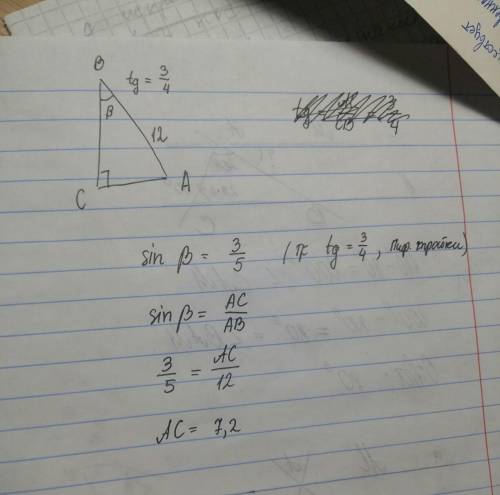 B
tg = 3/4
β
12
C
A
sin β = 3/5 (тк tg = 3/4, пиф. тройки)
sin β = AC/AB
3/5 = AC/12
AC = 7,2